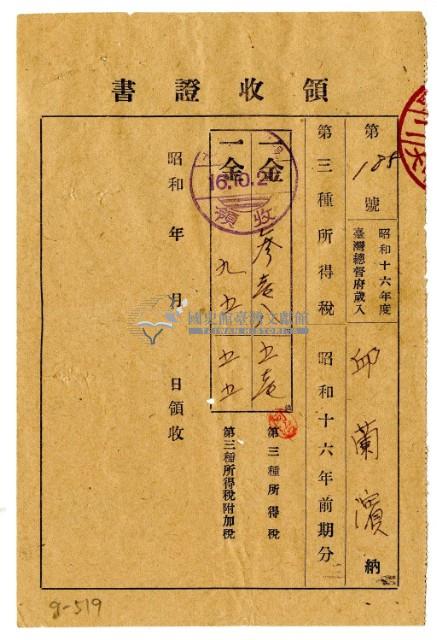 領收證書
第185號
昭和十六年度
臺灣總督府歲入
邱蘭濱納
第三種所得稅 昭和十六年前期分
一金 參壹 五壹 第三種所得稅
一金 九五 五五 第三種所得稅附加稅
昭和 年 月 日領收
16.10.2
領收
國史館臺灣文獻館
TAIWAN HISTORICA
9-519